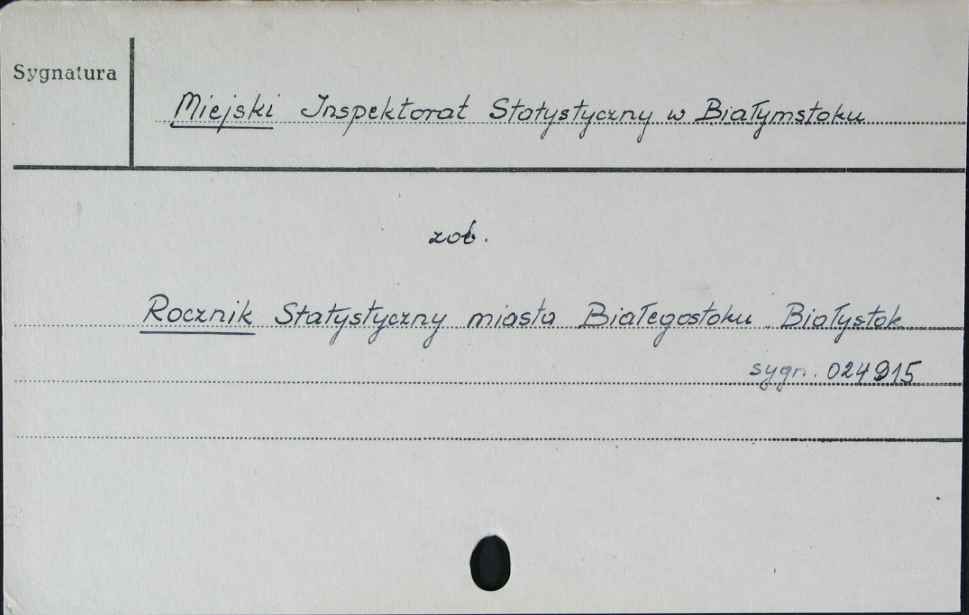 Sygnatura
Miejski Inspektorat Statystyczny w Białymstoku
zob.
Rocznik Statystyczny miasta Białegostoku. Białystok
sygn. 024915